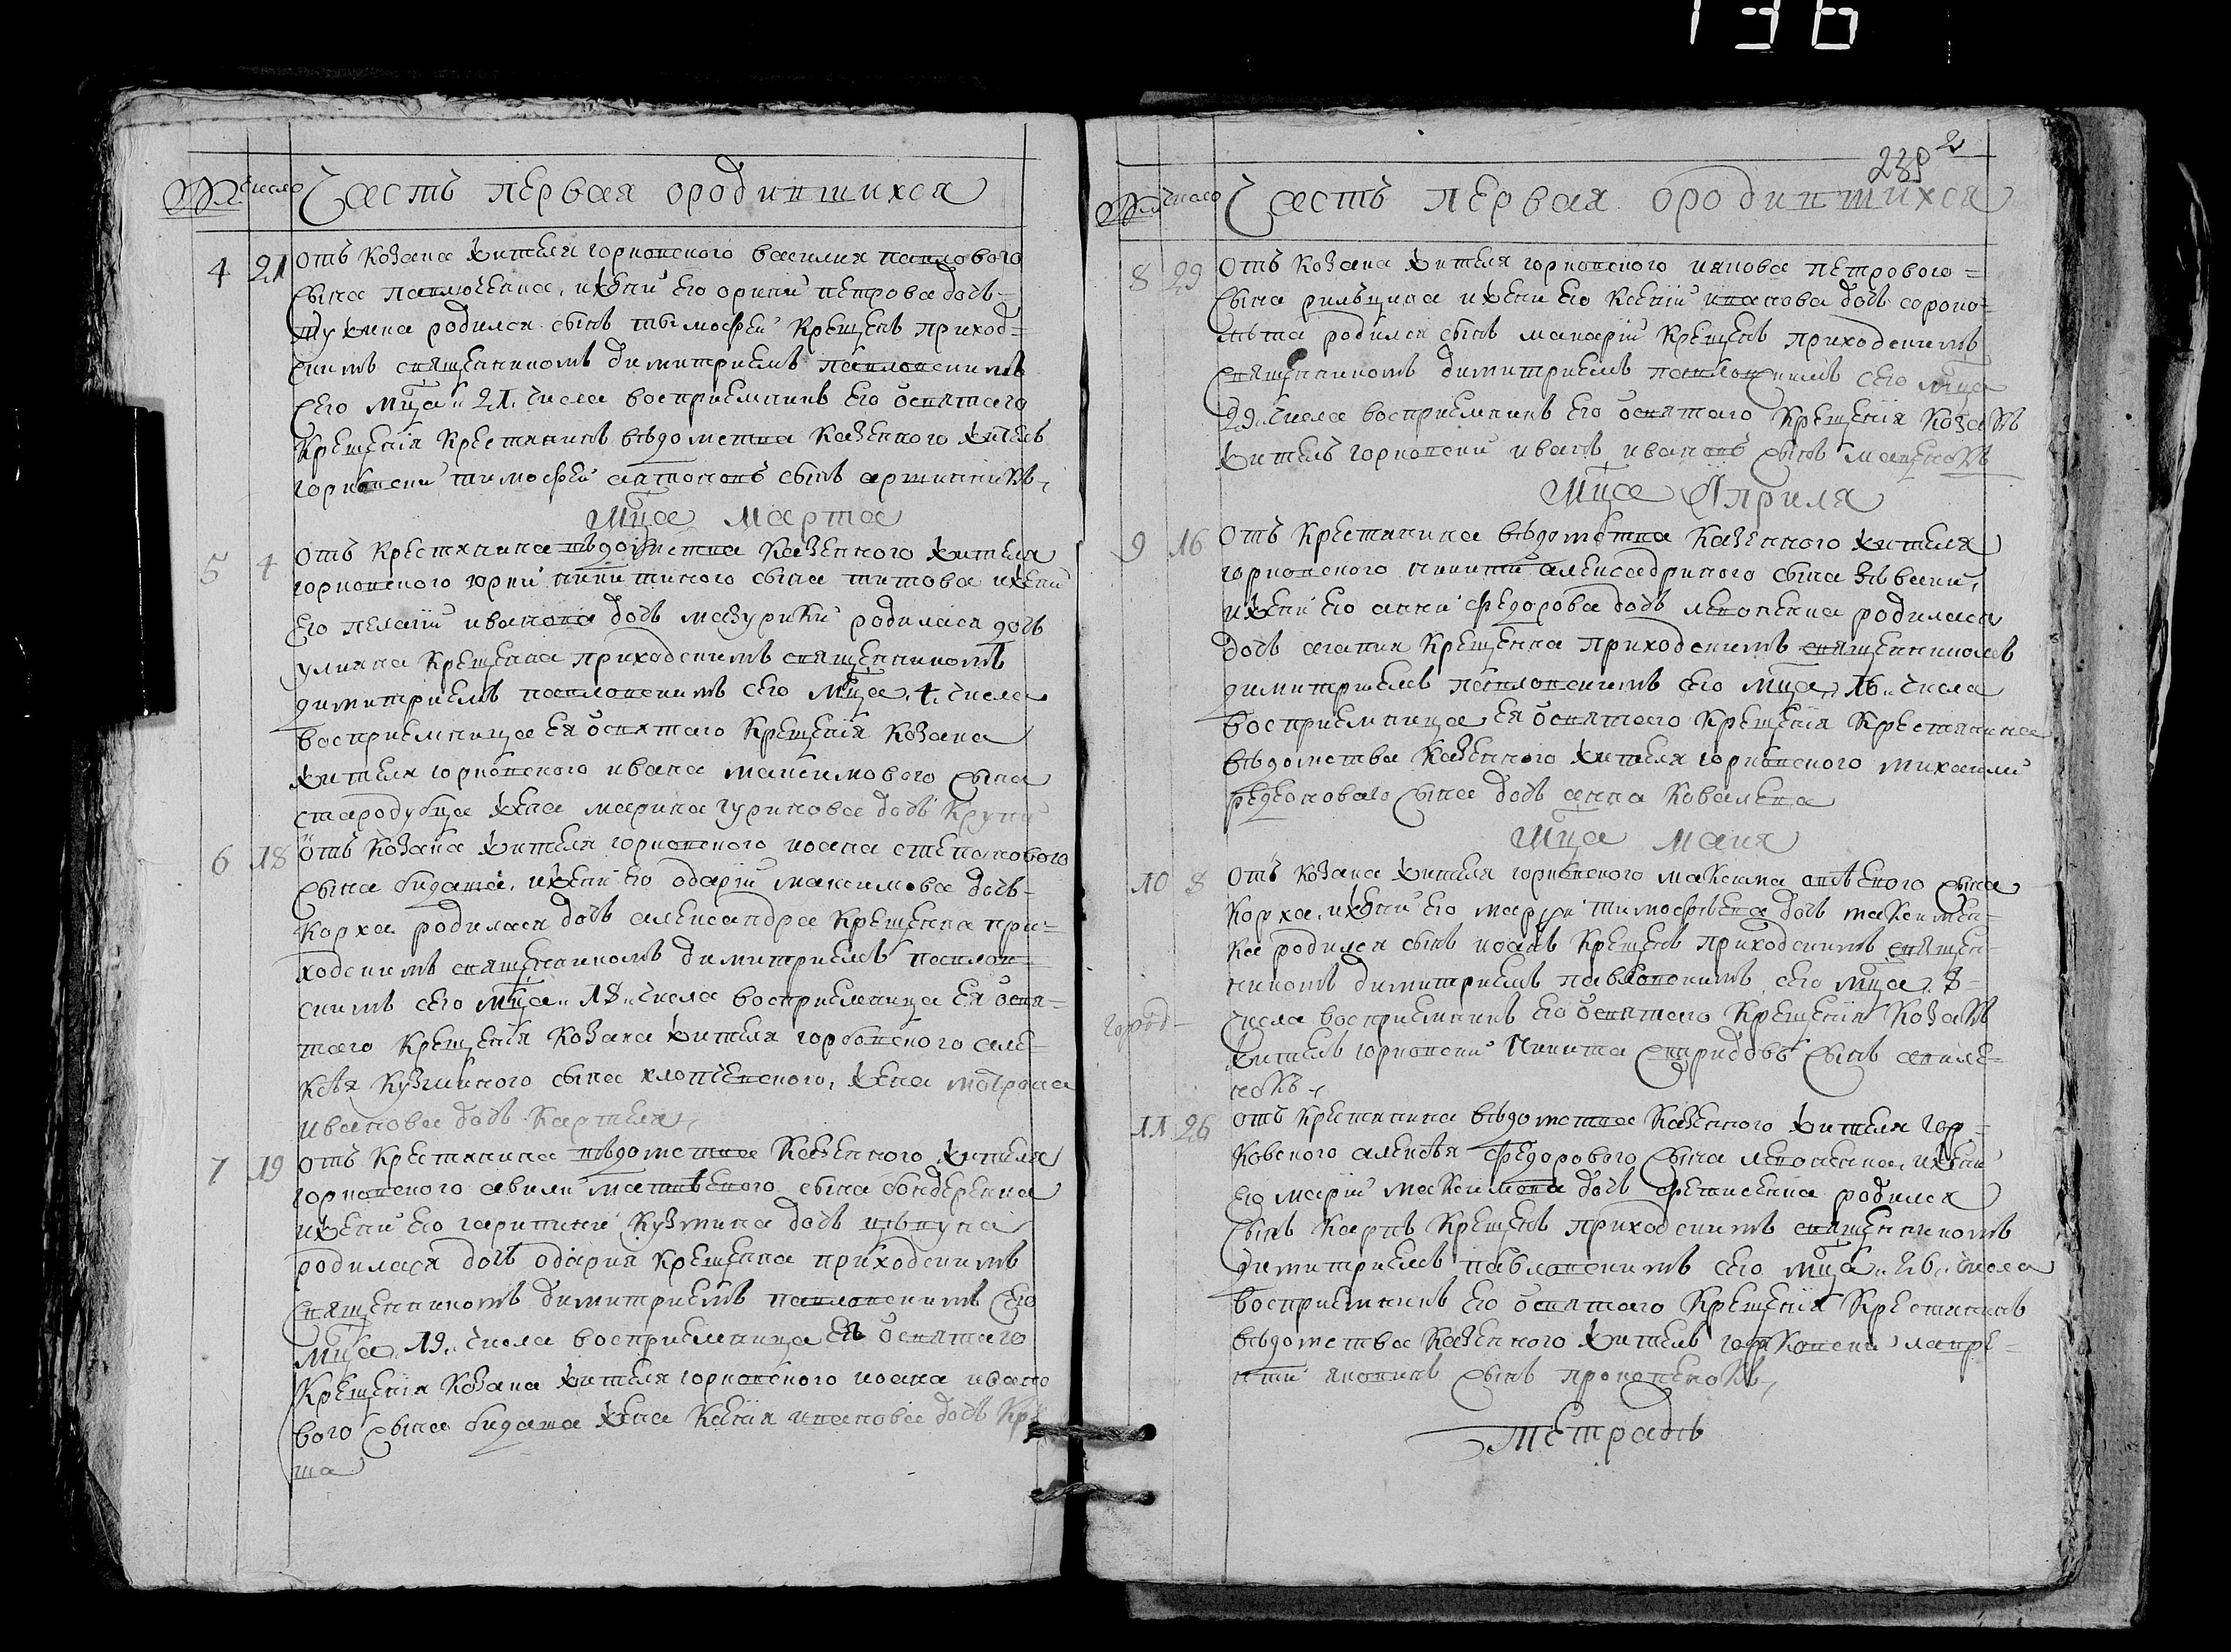 136
№ число Часть первая ородившихся
4 21 отъ козака жителя горковского василия павлового
сына павлюченка, ижени его орини петрова дочь
родился сынъ тимофей крещенъ приход-
скимъ священникомъ димитриемъ павловскимъ
сего мца 21. числа восприемникъ его освятаго
крещения крестянинъ ведомства казенного житель
горковски тимофей сынъ
Мца Марта
5 4 отъ крестянина ведомства казенного жителя
горковского никитиного сына титова ижени
его пелагии иванова дочь мазурики родилася дочь
улияна крещенна приходскимъ священникомъ
димитриемъ павловскимъ сего мца 4. числа
восприемница ея освятаго крещения козака
жителя горковского ивана максимового сына
стародубца жена марина гуринова дочь
6 18 отъ козака жителя горковского иоана степановового
сына бидаша, ижени его одарии максимова дочь
корха родилася дочь александра крещенна при-
ходскимъ священникомъ димитриемъ павлов-
скимъ сего мца 18. числа восприемница ея освя-
таго крещения козака жителя горбовского але-
ксея кузминого сына жена мотрона
иванова дочь
7 19 отъ крестянина ведомства казенного жителя
горковского матвеевого сына бондаренка
ижени его гарпини кузмина дочь
родилася дочь одария крещенна приходскимъ
священникомъ димитриемъ павловскимъ сего
мца 19. числа восприемница ея освятаго
крещения козака жителя горковского иоана ивано
вого сына бидаша жена ксения иванова дочь
та
2
239
№ число Часть первая ородившихся
8 29 отъ козака жителя горковского иякова петрового
сына рильщика ижени его ксении иванова дочь сороко-
лета родился сынъ макарий крещенъ приходскимъ
священникомъ димитриемъ павловскимъ сего мца
29. числа восприемникъ его освятаго крещения козакъ
житель горковски иванъ ивановъ сынъ маценокъ
Мца Априля
9 16 отъ крестянина ведомства казенного жителя
горковского никити александриного сына
ижени его анни федорова дочь родилася
дочь агапия крещенна приходскимъ священникомъ
димитриемъ павловскимъ сего мца 16. числа
восприемница ея освятаго крещения крестянина
ведомства казенного жителя горковского михаили
сына дочь анна ковалева
Мца Маия
10 8 отъ козака жителя горковского максима сына
корха, ижени его марфи тимофеева дочь максимен-
ка родился сынъ иоанъ крещенъ приходскимъ священ-
никомъ димитриемъ павловскимъ сего мца 8
числа восприемникъ его освятаго крещения козакъ
город-
житель горковски никита спиридовъ сынъ
нокъ
11 26 отъ крестянина ведомства казенного жителя гор-
ковского алексея федорового сына ижени
его марии максимова дочь фетисенка родился
сынъ карпъ крещенъ приходскимъ священникомъ
димитриемъ павловскимъ сего мца 26. числа
восприемникъ его освятаго крещения крестянинъ
ведомства казенного житель горковски лавре-
нти яковинъ сынъ прокопенокъ
Тетрадь